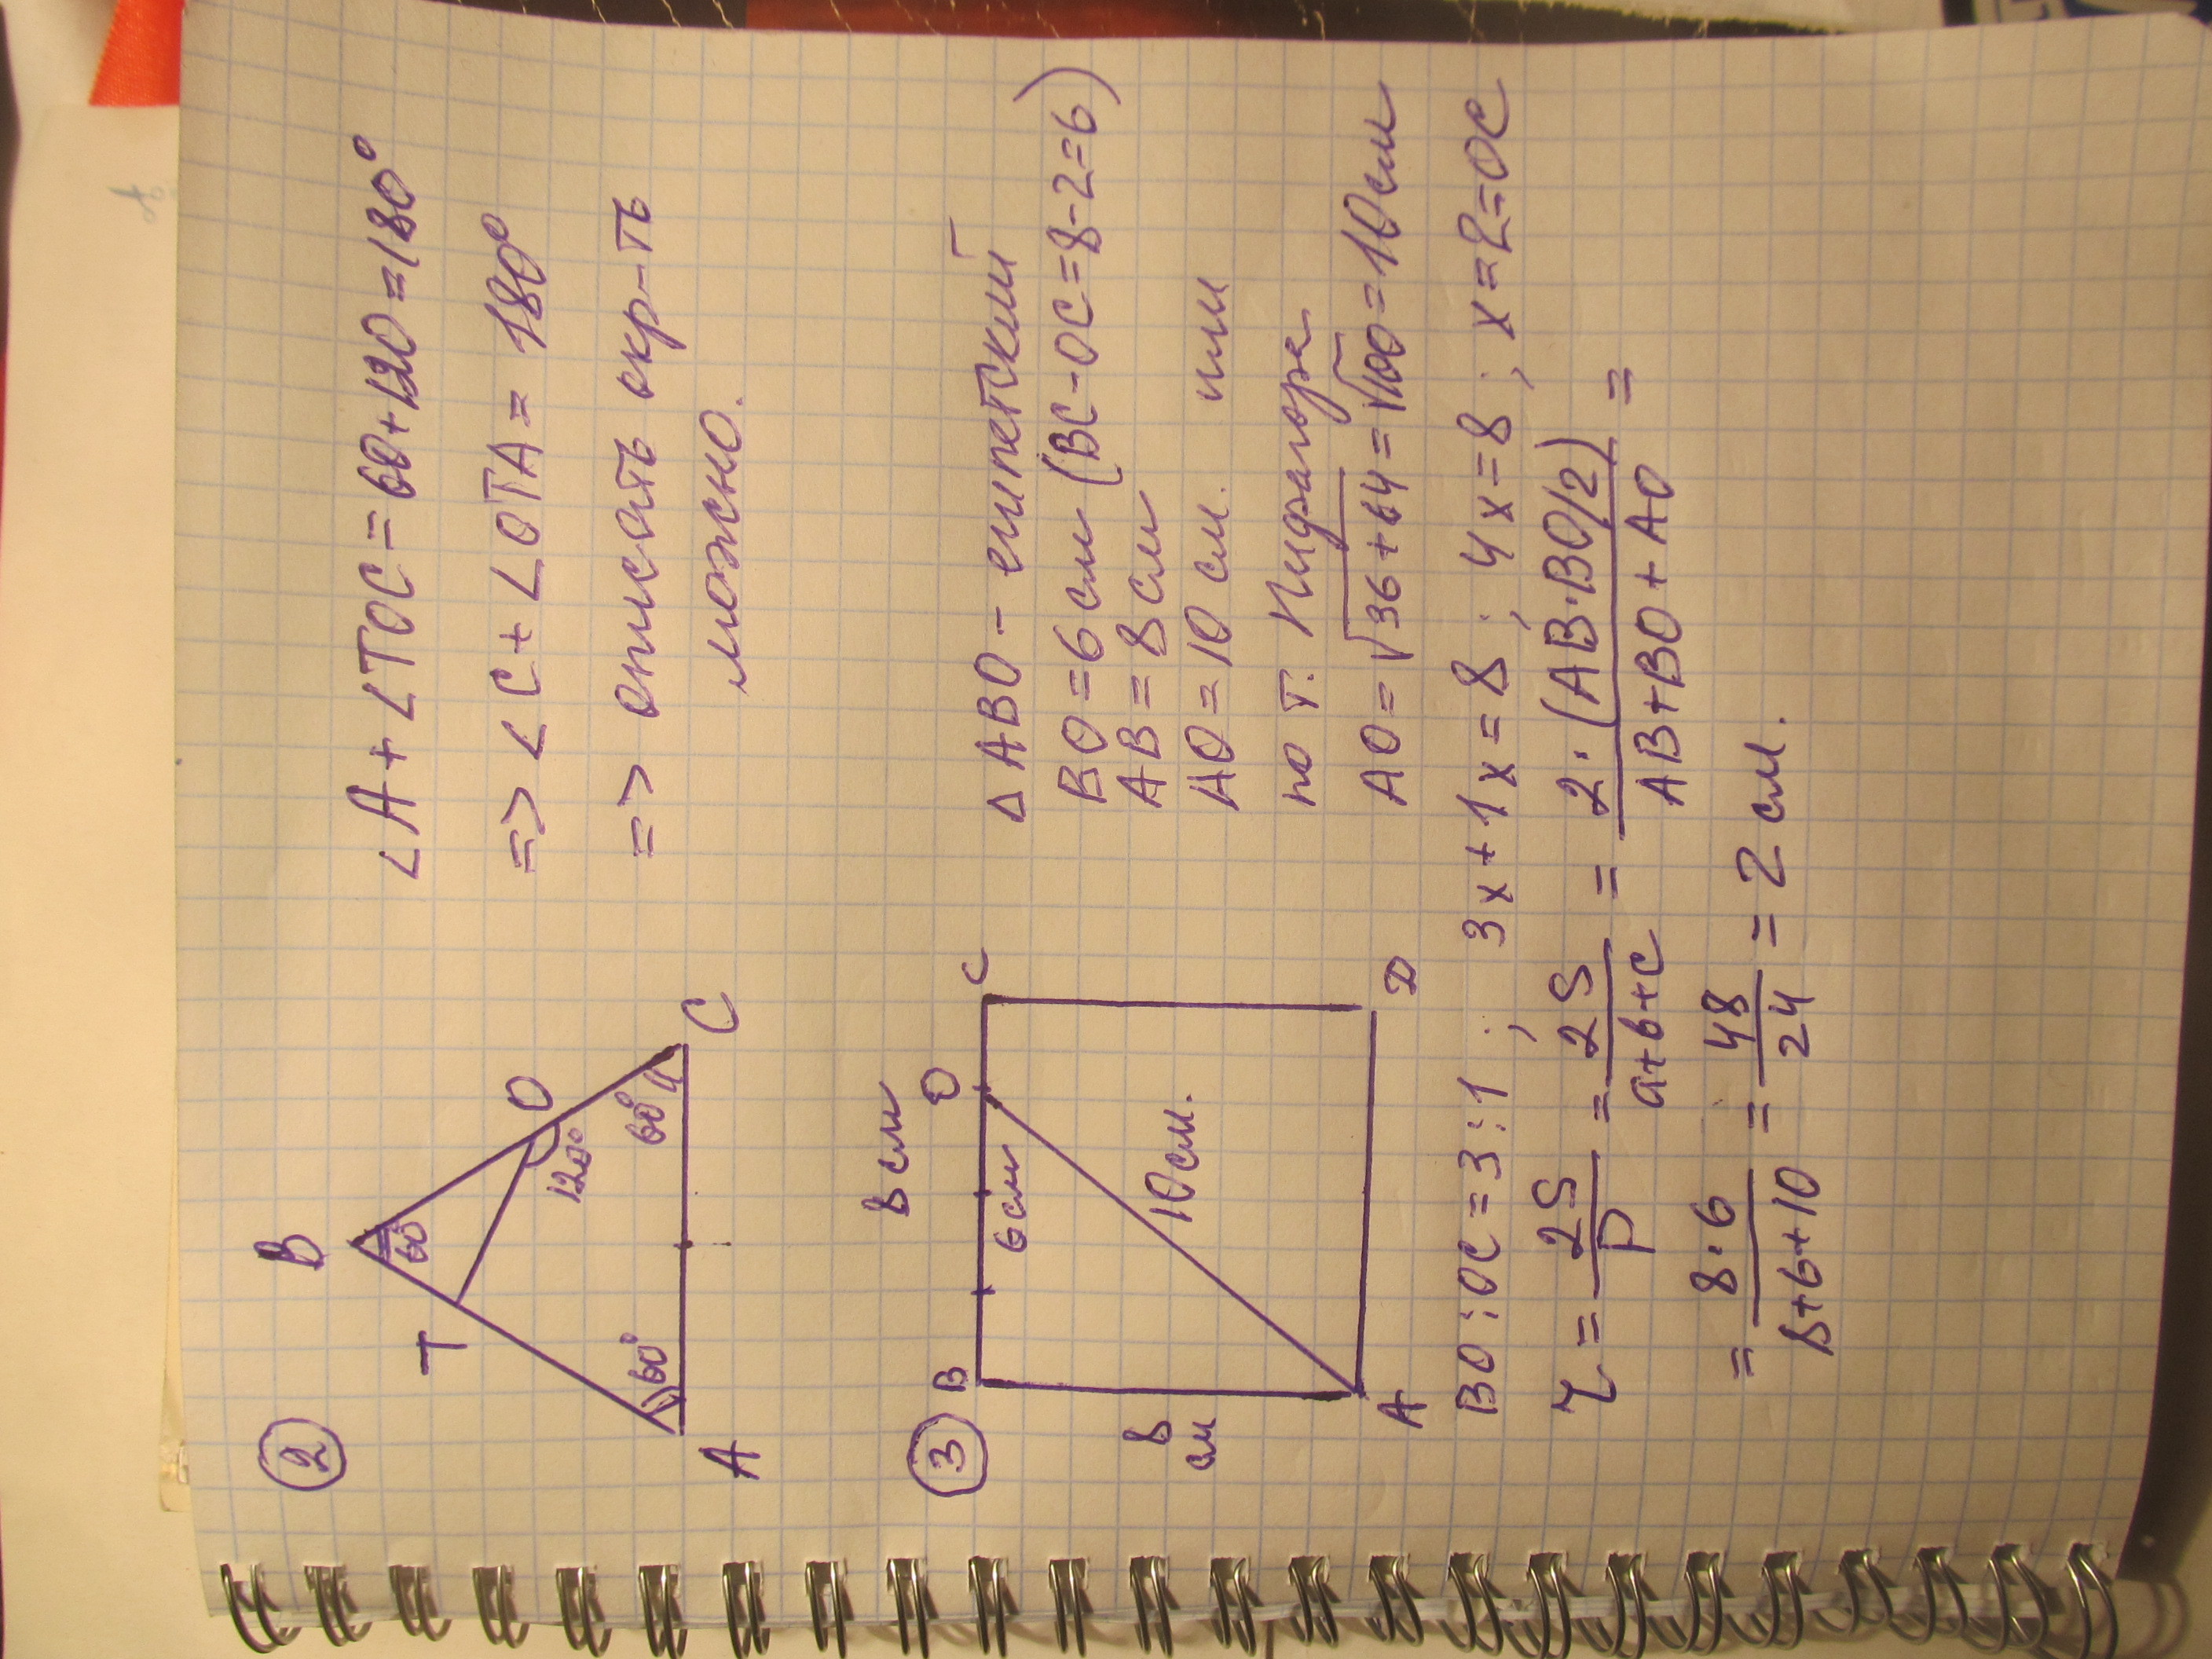 2
B
60°
T
O
120°
60°
60°
A
C
∠A + ∠TOC = 60 + 120 = 180°
=> ∠C + ∠OTA = 180°
=> описать окр-ть
можно.
3
8 см
B
6 см
O
C
8 см
10 см.
A
D
Δ ABO - египетский
BO = 6 см (BC - OC = 8 - 2 = 6)
AB = 8 см
AO = 10 см. или
по т. Пифагора
AO = √36 + 64 = √100 = 10 см
BO : OC = 3 : 1 ; 3x + 1x = 8 ; 4x = 8 ; x = 2 = OC
r = 2S/P = 2S/a+b+c = 2·(AB·BO/2)/AB+BO+AO =
= 8·6/8+6+10 = 48/24 = 2 см.